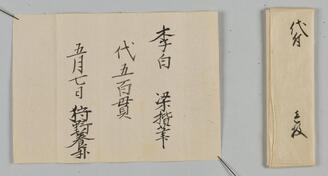 李白 梁楷筆
代五百貫
五月七日 狩野養朴
代付